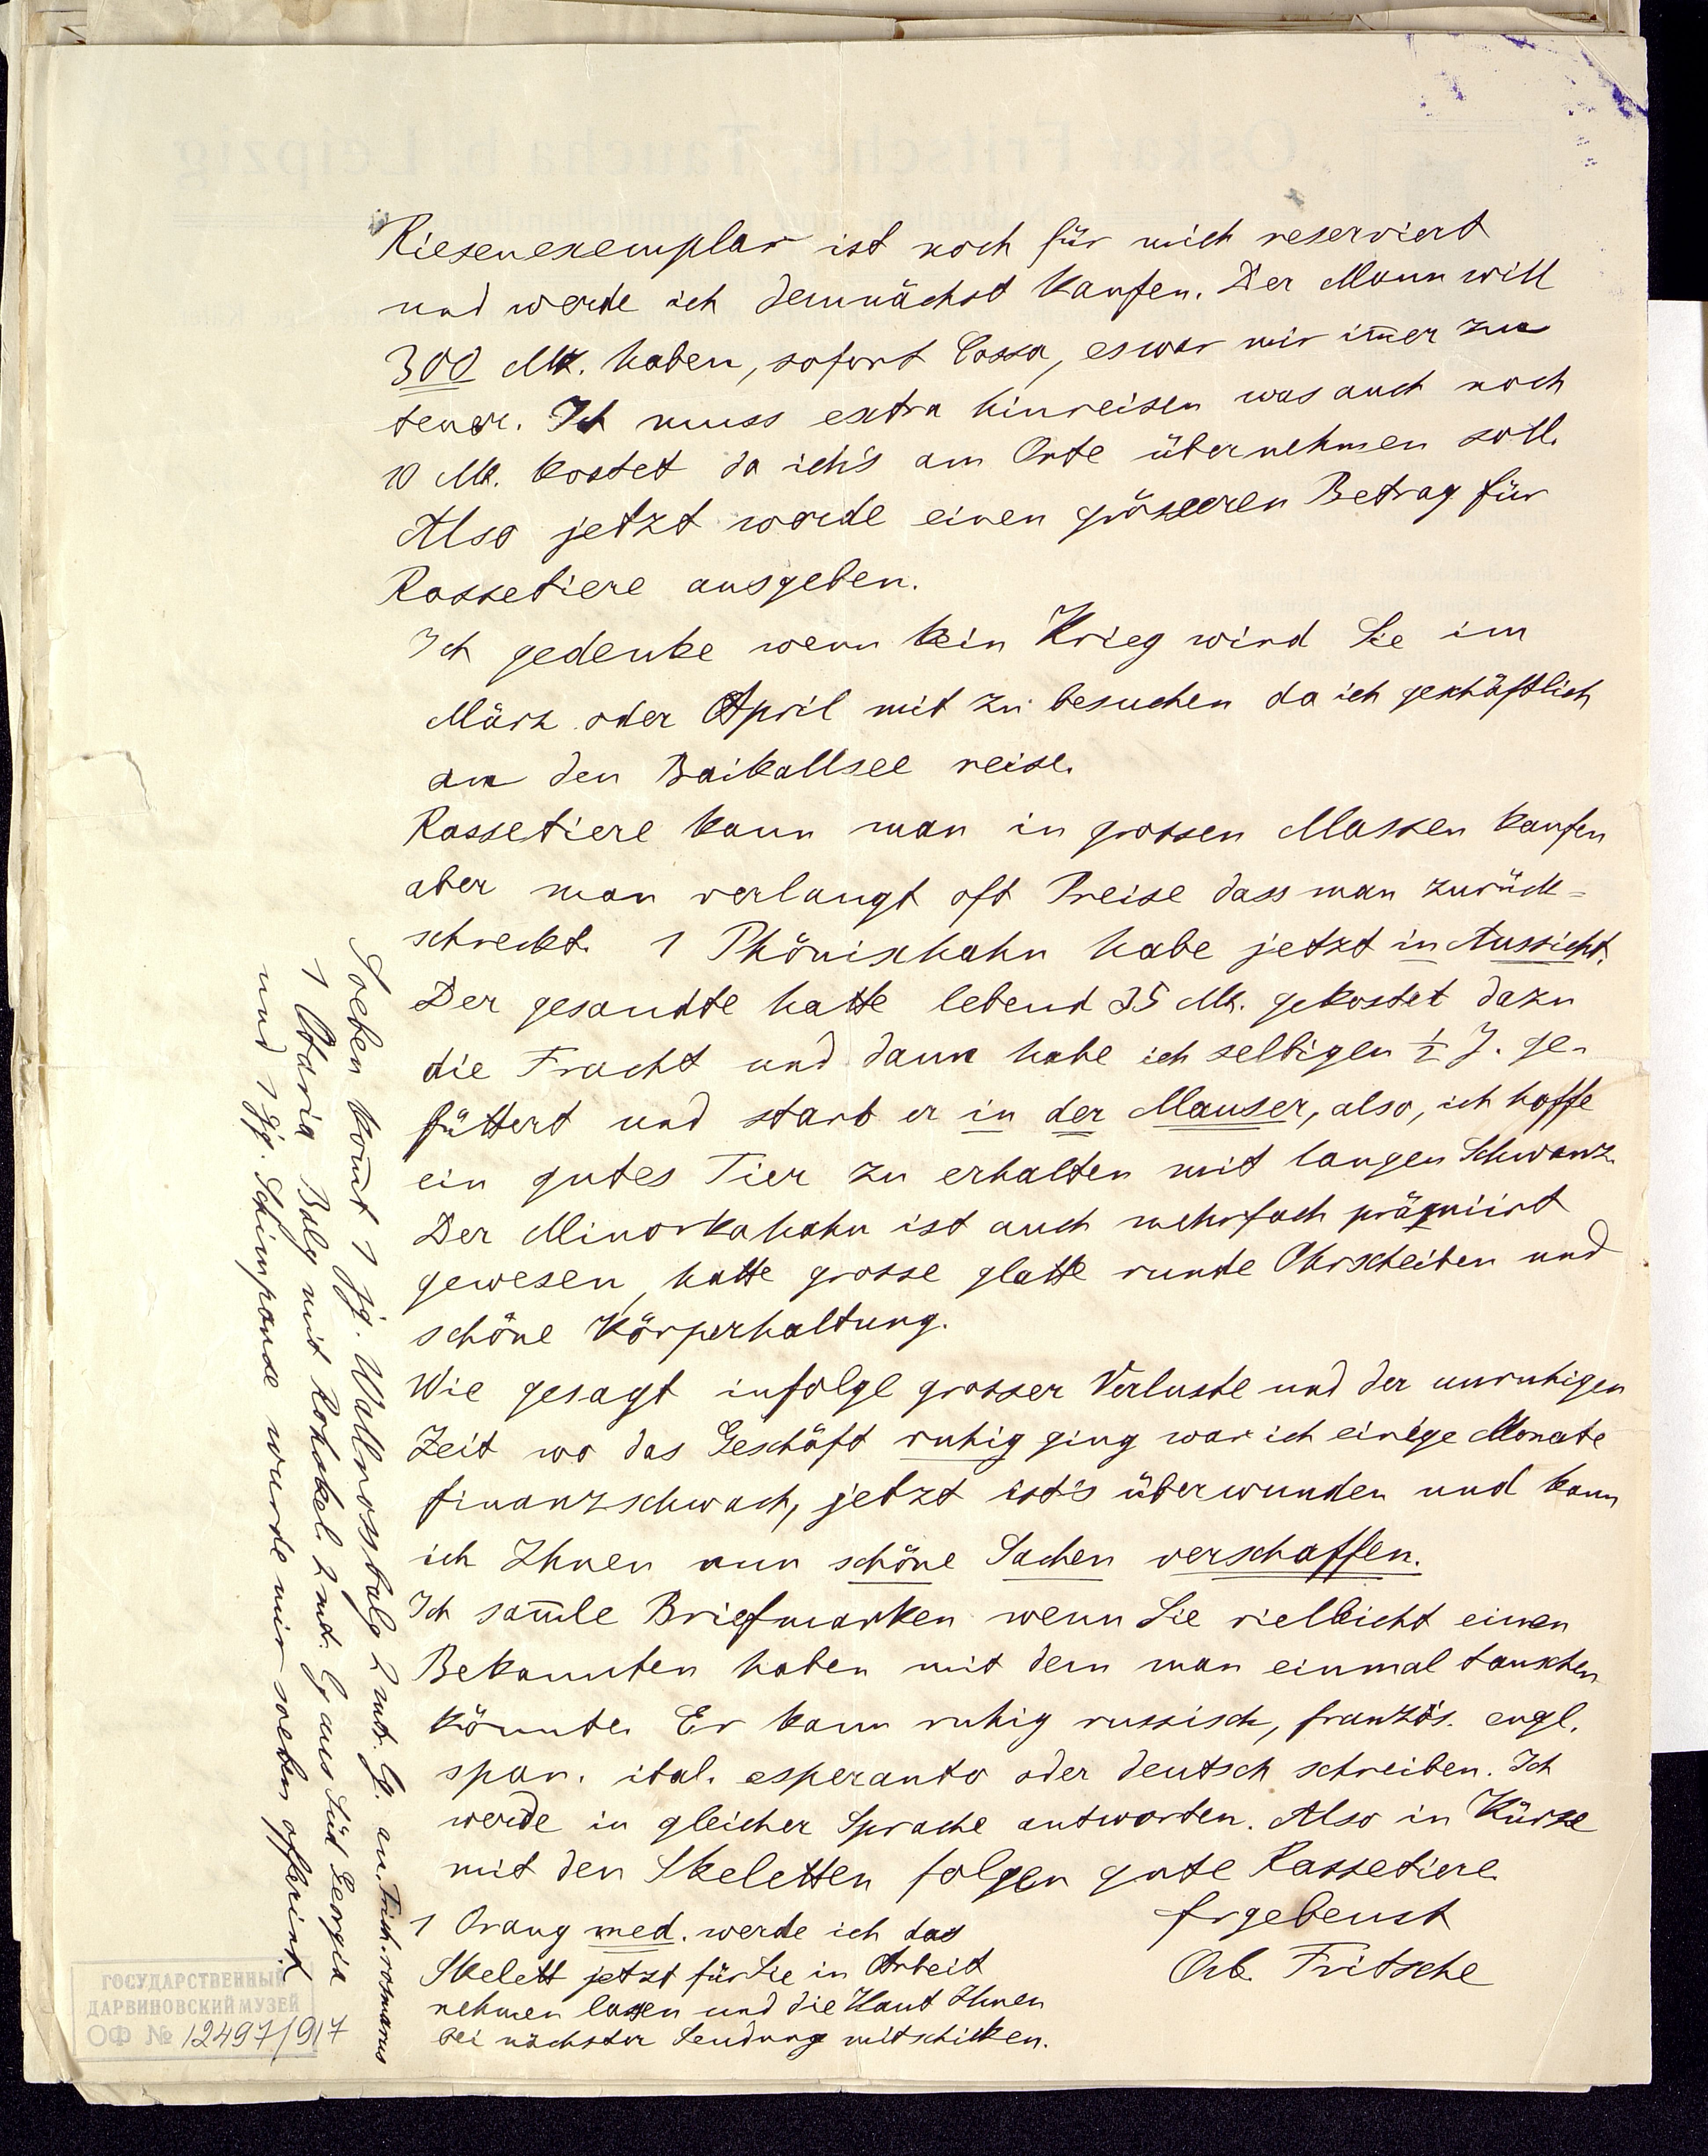 Riesenexemplar ist noch für mich reserviert
und werde ich demnächst kaufen. Der Mann will
300 Mk. haben, sofort Cassa, es war mir im̄er zu
teuer. Ich muss extra hinreisen was auch noch
10 Mk. kostet da ich's am Orte übernehmen soll.
Also jetzt werde einen grösseren Betrag für
Rassetiere ausgeben.
Ich gedenke wenn kein Krieg wird Sie im
März oder April mit zu besuchen da ich geschäftlich
an den Baikallsee reise.
Rassetiere kann man in grossen Massen kaufen
aber man verlangt oft Preise dass man zurück=
schreckt. 1 Phönixhahn habe jetzt in Aussicht.
Der gesandte hatte lebend 35 Mk. gekostet dazu
die Fracht und dann habe ich selbigen ½ J. ge-
füttert und starb er in der Mauser, also, ich hoffe
ein gutes Tier zu erhalten mit langen Schwanz.
Der Minorkahahn ist auch mehrfach prämiirt
gewesen, hatte grosse glatte runde Ohrscheiben und
schöne Körperhaltung.
Wie gesagt infolge grosser Verluste und der unruhigen
Zeit wo das Geschäft ruhig ging war ich einige Monate
finanzschwach, jetzt ist's überwunden und kann
ich Ihnen nun schöne Sachen verschaffen.
Ich sam̄le Briefmarken wenn Sie vielleicht einen
Bekannten haben mit dem man einmal tauschen
könnte. Er kann ruhig russisch, französ. engl.
span. ital. esperanto oder deutsch schreiben. Ich
werde in gleicher Sprache antworten. Also in Kürze
mit den Skeletten folgen gute Rassetiere.
Ergebenst
Osk. Fritsche
1 Orang med. werde ich das
Skelett jetzt für Sie in Arbeit
nehmen lassen und die Haut Ihnen
bei nächster Sendung mitschicken.
Soeben kom̄t 1 jg. Wallrossbalg 2 mt. lg. an. Trich. rosmarus
1 Otaria Balg mit Rohskel. 2 mt. lg aus Süd Georgia
und 1 jg. Schimpanse wurde mir soeben offerirt.
ГОСУДАРСТВЕННЫЙ
ДАРВИНОВСКИЙ МУЗЕЙ
ОФ № 12497/917